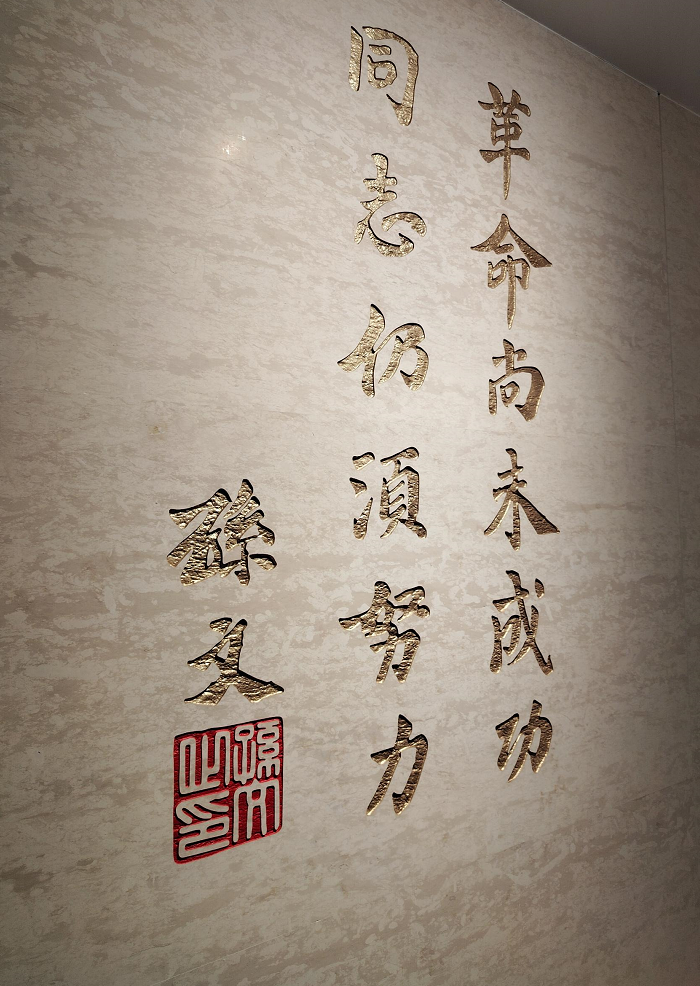 革命尚未成功
同志仍須努力
孫文
孫文之印